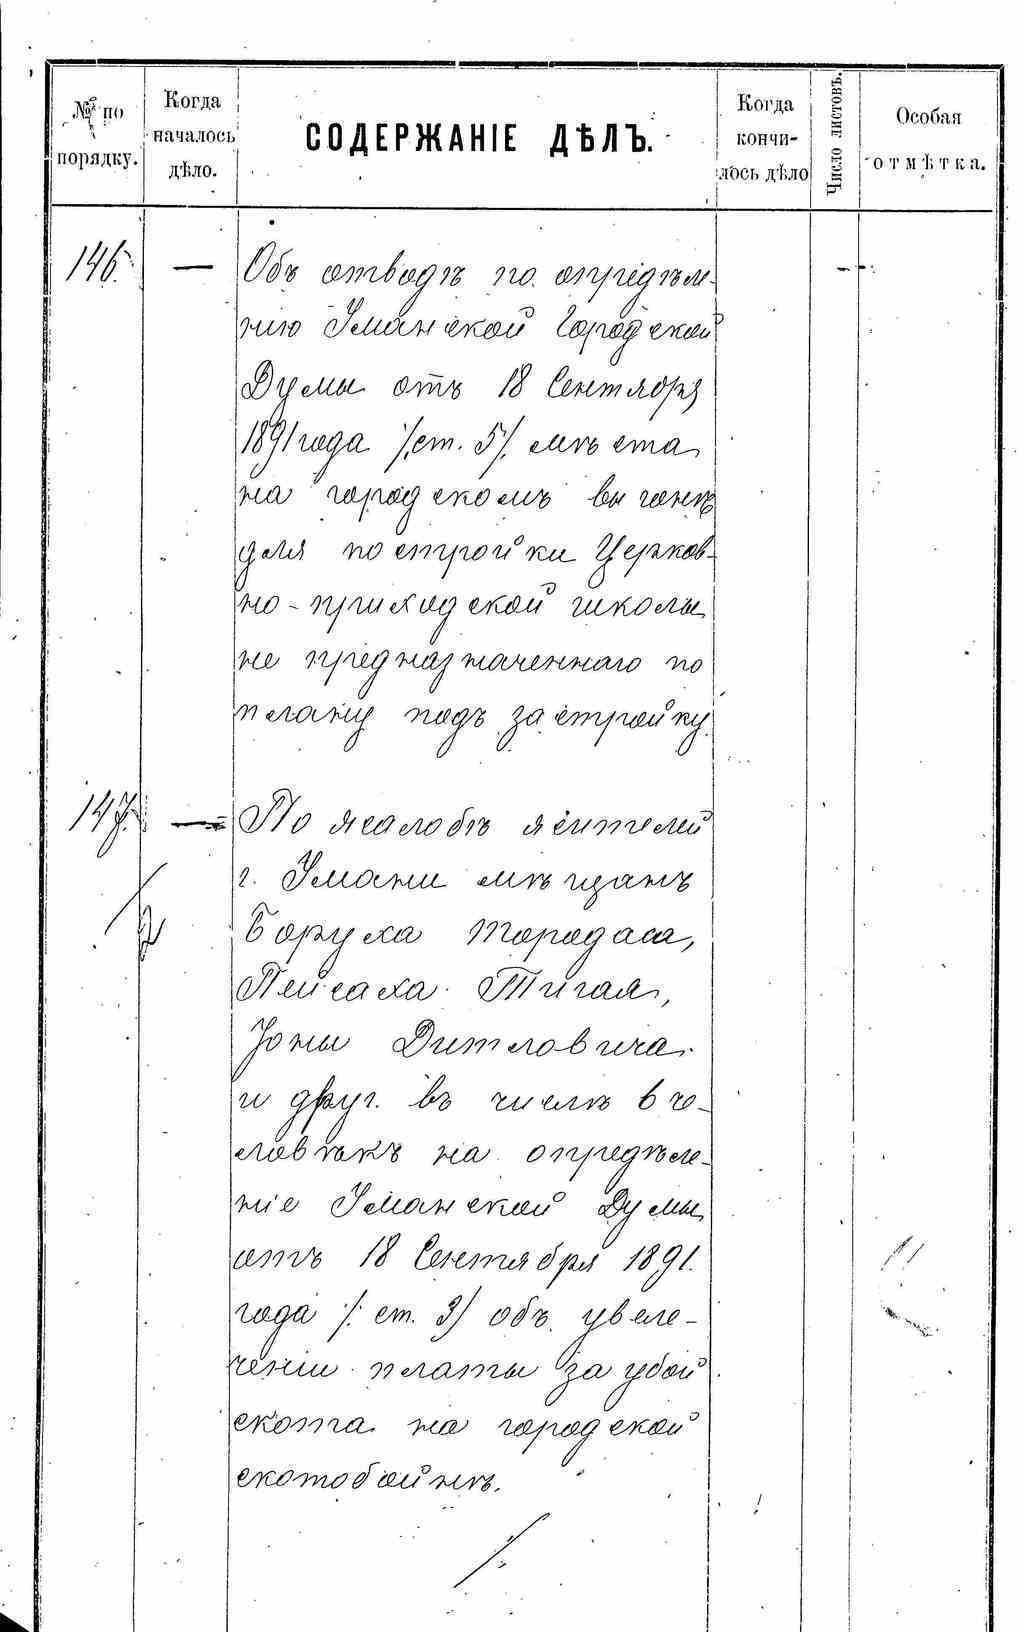 № по порядку.
Когда началось дѣло.
СОДЕРЖАНІЕ ДѢЛЪ.
Когда кончи-лось дѣло
Число листовъ.
Особая отмѣтка.
146. —
Объ отводѣ по опредѣле-
нію Уманской Городской
Думы отъ 18 Сентября
1891 года /ст. 5/. мѣста
на городскомъ выгонѣ
для постройки Церков-
но-приходской школы
не предназначеннаго по
плану подъ застройку
147. —
По жалобѣ жителей
г. Умани мѣщанъ
Боруха Тородаса,
Пейсаха Тигая,
Іоны Дитловича
и друг. въ числѣ 6 че-
ловѣкъ на опредѣле-
ніе Уманской Думы
отъ 18 Сентября 1891.
года /: ст. 3/ объ увеле-
ченіи платы за убой
скота на городской
скотобойнѣ.